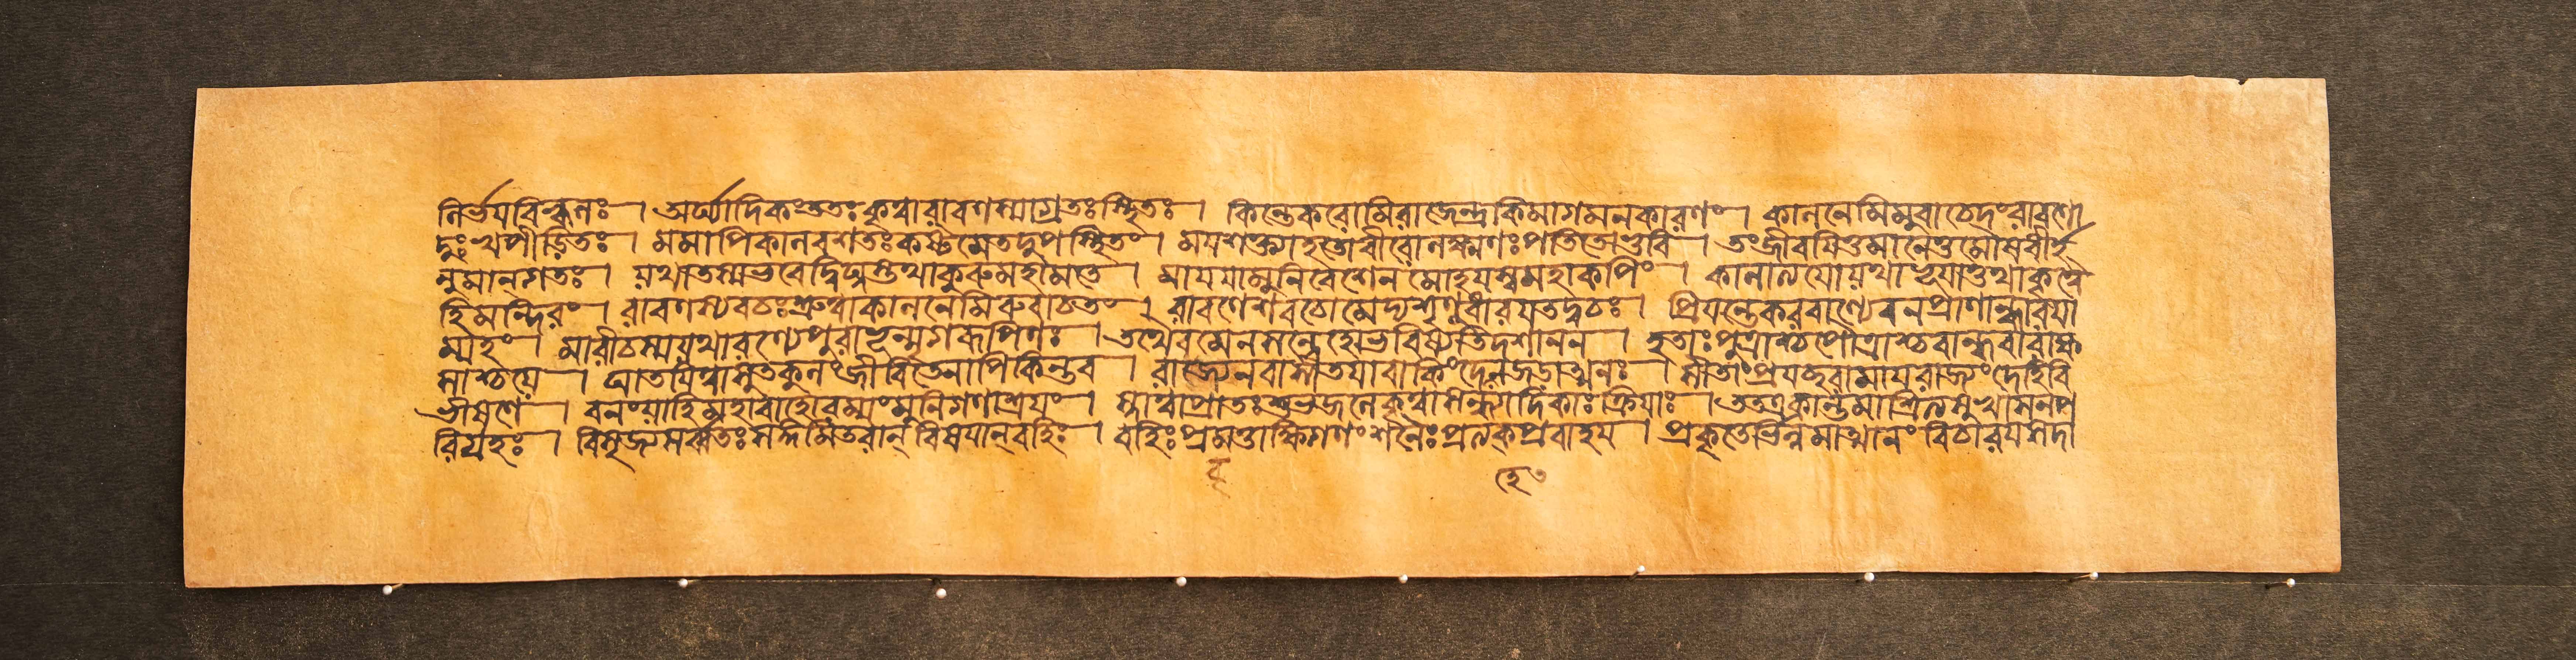 নির্ভয়বিহ্বলঃ । অর্ঘ্যাদিকং ততঃ কৃত্বা রাবণস্যাগ্রতঃ স্থিতঃ । কিন্তে করোমি রাজেন্দ্র কিমাগমনকারণং । কালনেমিমুবাচেদং রাবণো
দুঃখপীড়িতঃ । মমাপি কালবশতঃ কষ্টমেতদুপস্থিতং । ময়া শক্ত্যা হতো বীরো লক্ষ্মণঃ পতিতো ভুবি । তং জীবয়িতুমানেতুমোষধীর্হ
নুমান্ গতঃ । যথা তস্য ভবেদ্বিঘ্নস্তথা কুরু মহামতে । মায়য়া মুনিবেশেন মোহয়স্ব মহাকপিং । কালাত্যয়ো যথা ভূয়াত্তথা কৃত্বৈ
হি মন্দিরং । রাবণস্য বচঃ শ্রুত্বা কালনেমিরুবাচ তং । রাবণেশ বচো মেদ্য শৃণু ধারয় তদ্বচঃ । প্রিয়ন্তে করবাণ্যেব ন প্রাণান্ধারয়া
ম্যহং । মারীচস্য যথারণ্যে পুরাভূন্মৃগরূপিণঃ । তথৈব মে ন সন্দেহো ভবিষ্যতি দশানন । হতাঃ পুত্রাশ্চ পৌত্রাশ্চ বান্ধবা রাক্ষ
সাশ্চ মে । ঘাতয়িত্বাসুরকুলং জীবিতেনাপি কিন্তব । রাজ্যেন বা সীতয়া বা কিং দেহেন জড়াত্মনঃ । সীতাং প্রযচ্ছ রামায় রাজ্যং দেহি বি
ভীষণে । বনং যাহি মহাবাহো রম্যং মুনিগণাশ্রয়ং । স্নাত্বা প্রাতঃ শুভজলে কৃত্বা সন্ধ্যাদিকাঃ ক্রিয়াঃ । তত একান্তমাশ্রিত্য সুখাসনপ
রিগ্রহঃ । বিসৃজ্য সর্ব্বতঃ সঙ্গমিতরান্ বিষয়ান্ বহিঃ । বহিঃ প্রবৃত্তাক্ষিগণং শনৈঃ প্রত্যক্ প্রবাহয় । প্রকৃতের্ভিন্নমাত্মানং বিচারয় সদা
বৃ
হে